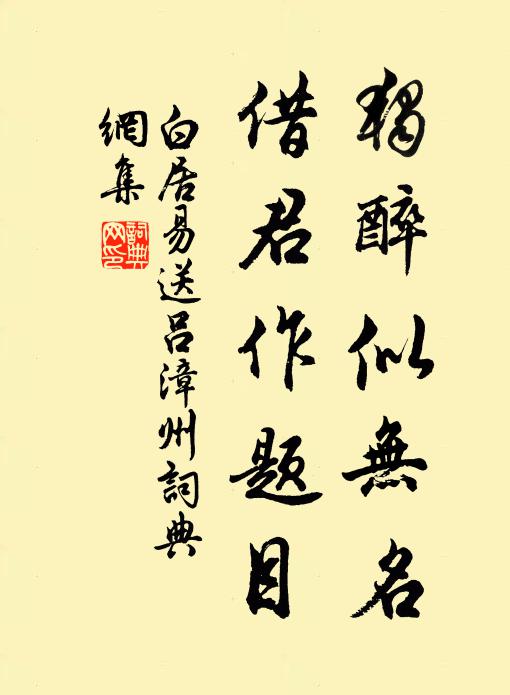 獨醉似無名
借君作題目
白居易送呂漳州詞典
網集
詞典网印